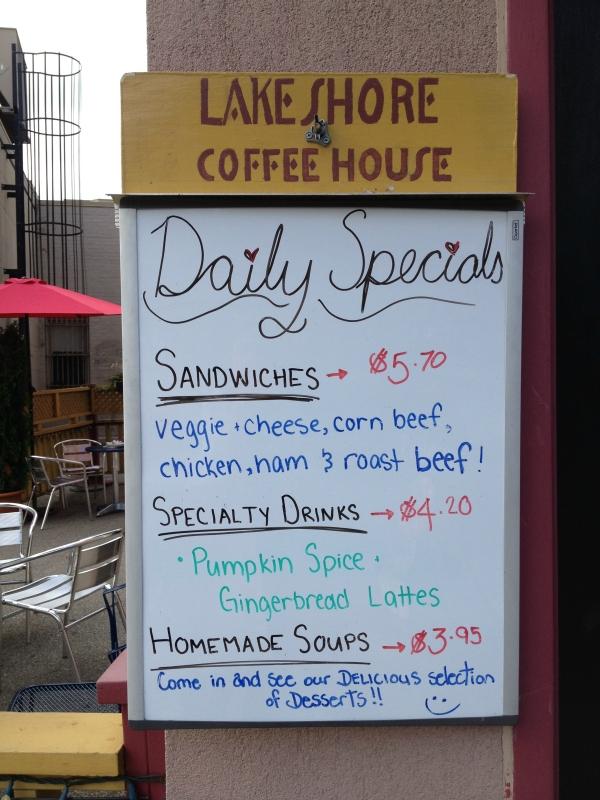 LAKE SHORE
COFFEE HOUSE
Daily Specials
SANDWICHES → $5.70
veggie + cheese, corn beef,
chicken, ham & roast beef!
SPECIALTY DRINKS → $4.20
• Pumpkin Spice •
Gingerbread Lattes
HOMEMADE SOUPS → $3.95
Come in and see our DELICIOUS selection
of Desserts!!